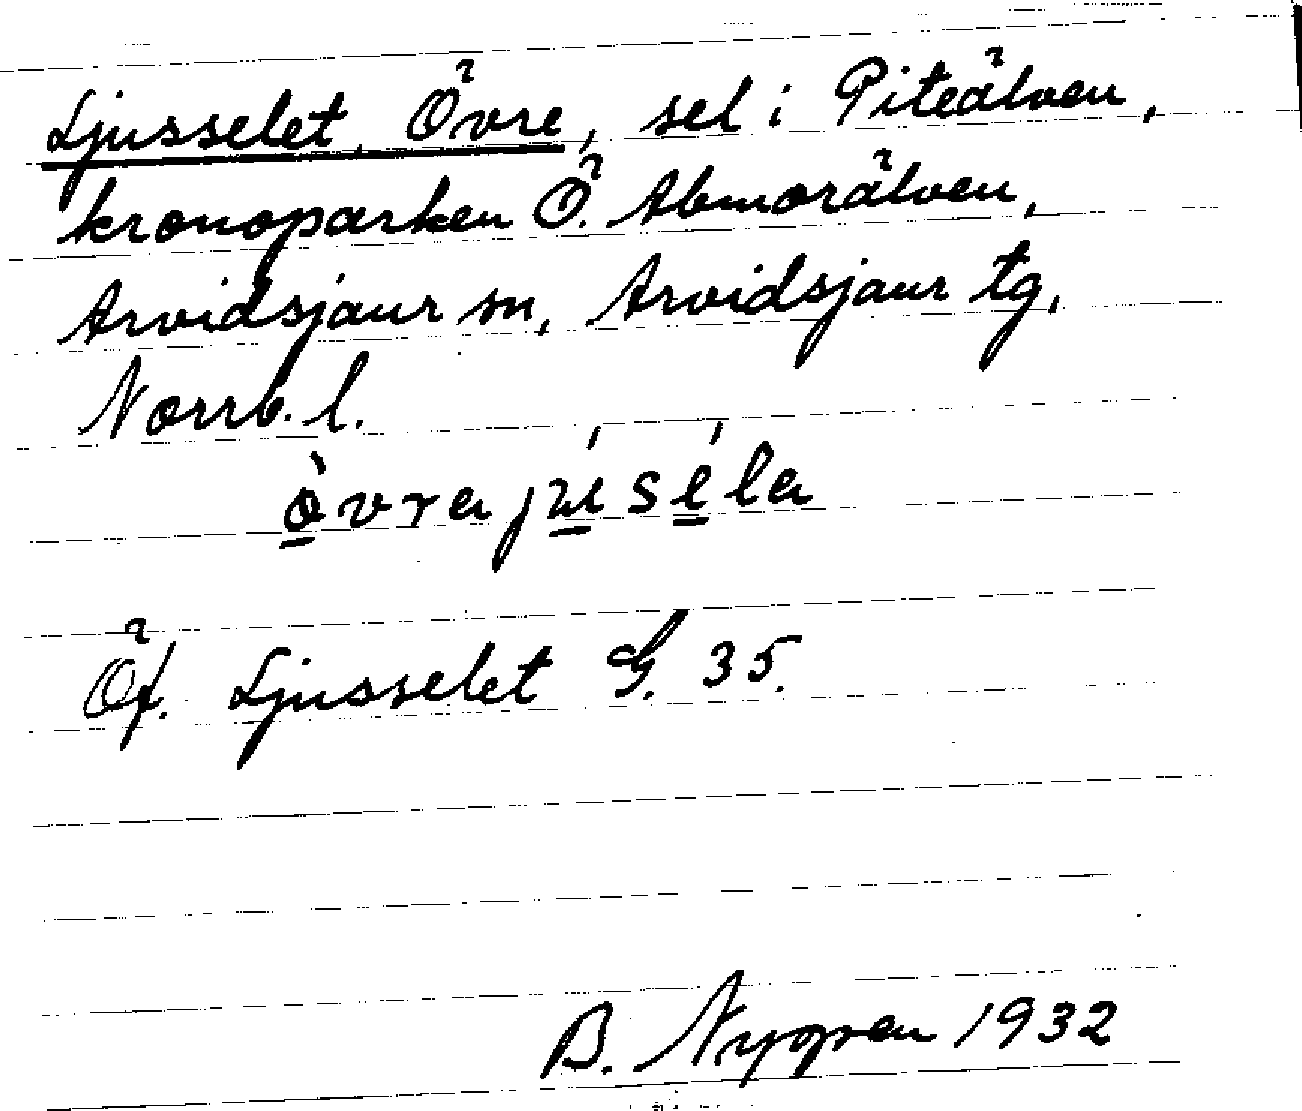 Ljusselet, Övre, sel i Piteälven,
kronoparken Ö. Abmorälven,
Arvidsjaur sn, Arvidsjaur tg,
Norrb. l.
Öf. Ljusselet G. 35.
B. Nygren 1932